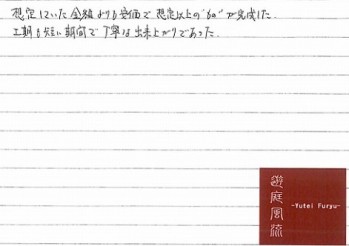 想定していた金額よりも安価で想定以上の"もの"が完成した。
工期も短い期間で丁寧な出来上がりであった。
遊庭風流
-Yutei Furyu-